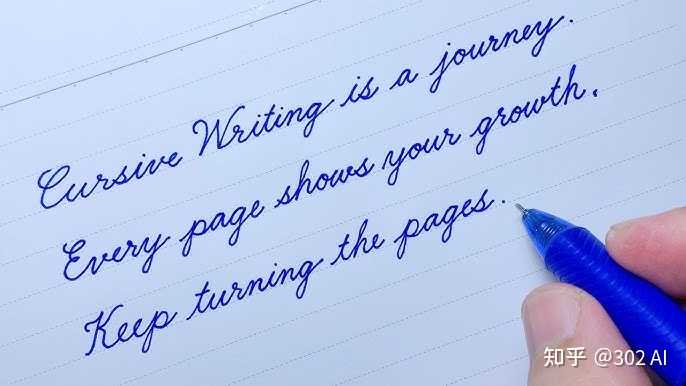 Cursive Writing is a journey.
Every page shows your growth.
Keep turning the pages.
知乎 @302 AI